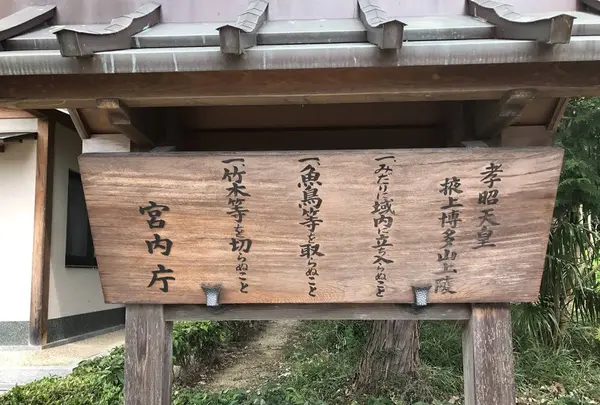 孝昭天皇
掖上博多山上陵
一、みだりに域内に立ち入らぬこと
一、魚鳥等を取らぬこと
一、竹木等を切らぬこと
宮内庁